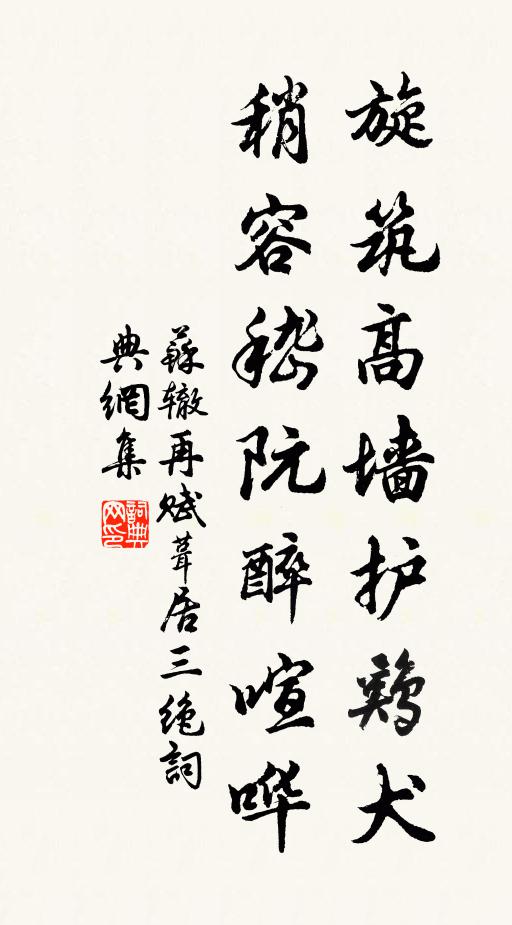 旋筑高墙护鸡犬
稍容嵇阮醉喧哗
蘇辙再赋葺居三绝詞
典網集
詞典网印